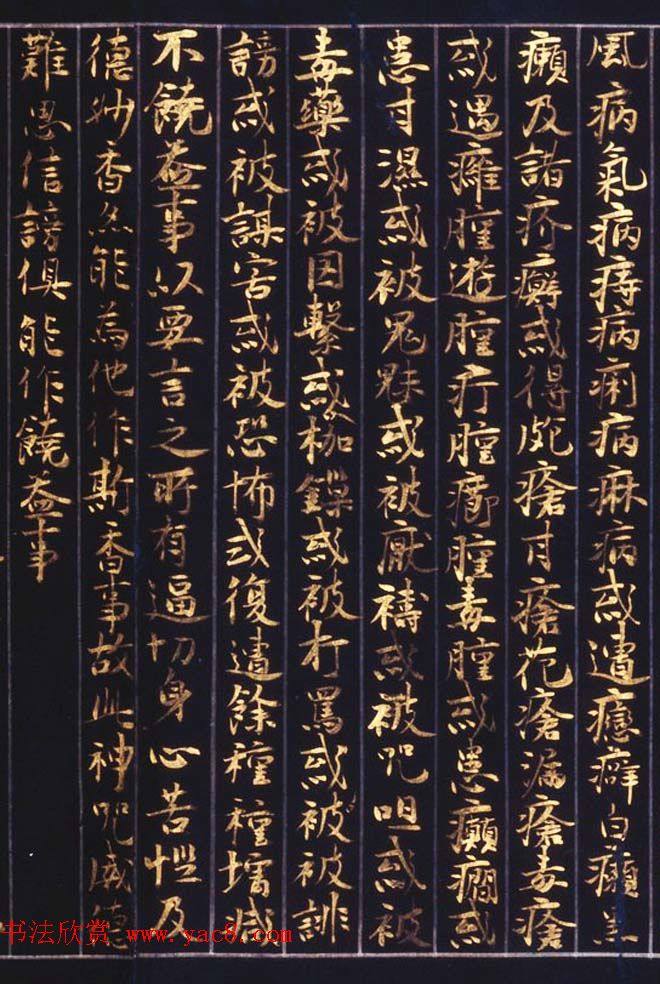 風病氣病痔病痢病痳病或遭癔癖白癩黑
癩及諸疥癬或得皰瘡甘瘡花瘡漏瘡毒瘡
或遇癰腫遊腫疔腫癤腫毒腫或患癲癇或
患甘濕或被鬼魅或被厭禱或被咒咀或被
毒藥或被囚繫或枷鎖或被打罵或被被誹
謗或被謀害或被恐怖或復遭餘種種
不饒益事以要言之所有逼切身心苦惱及
德妙香然能為他作斯香事故此神咒威德
難思信謗俱能作饒益事
书法欣赏 www.yac8.com